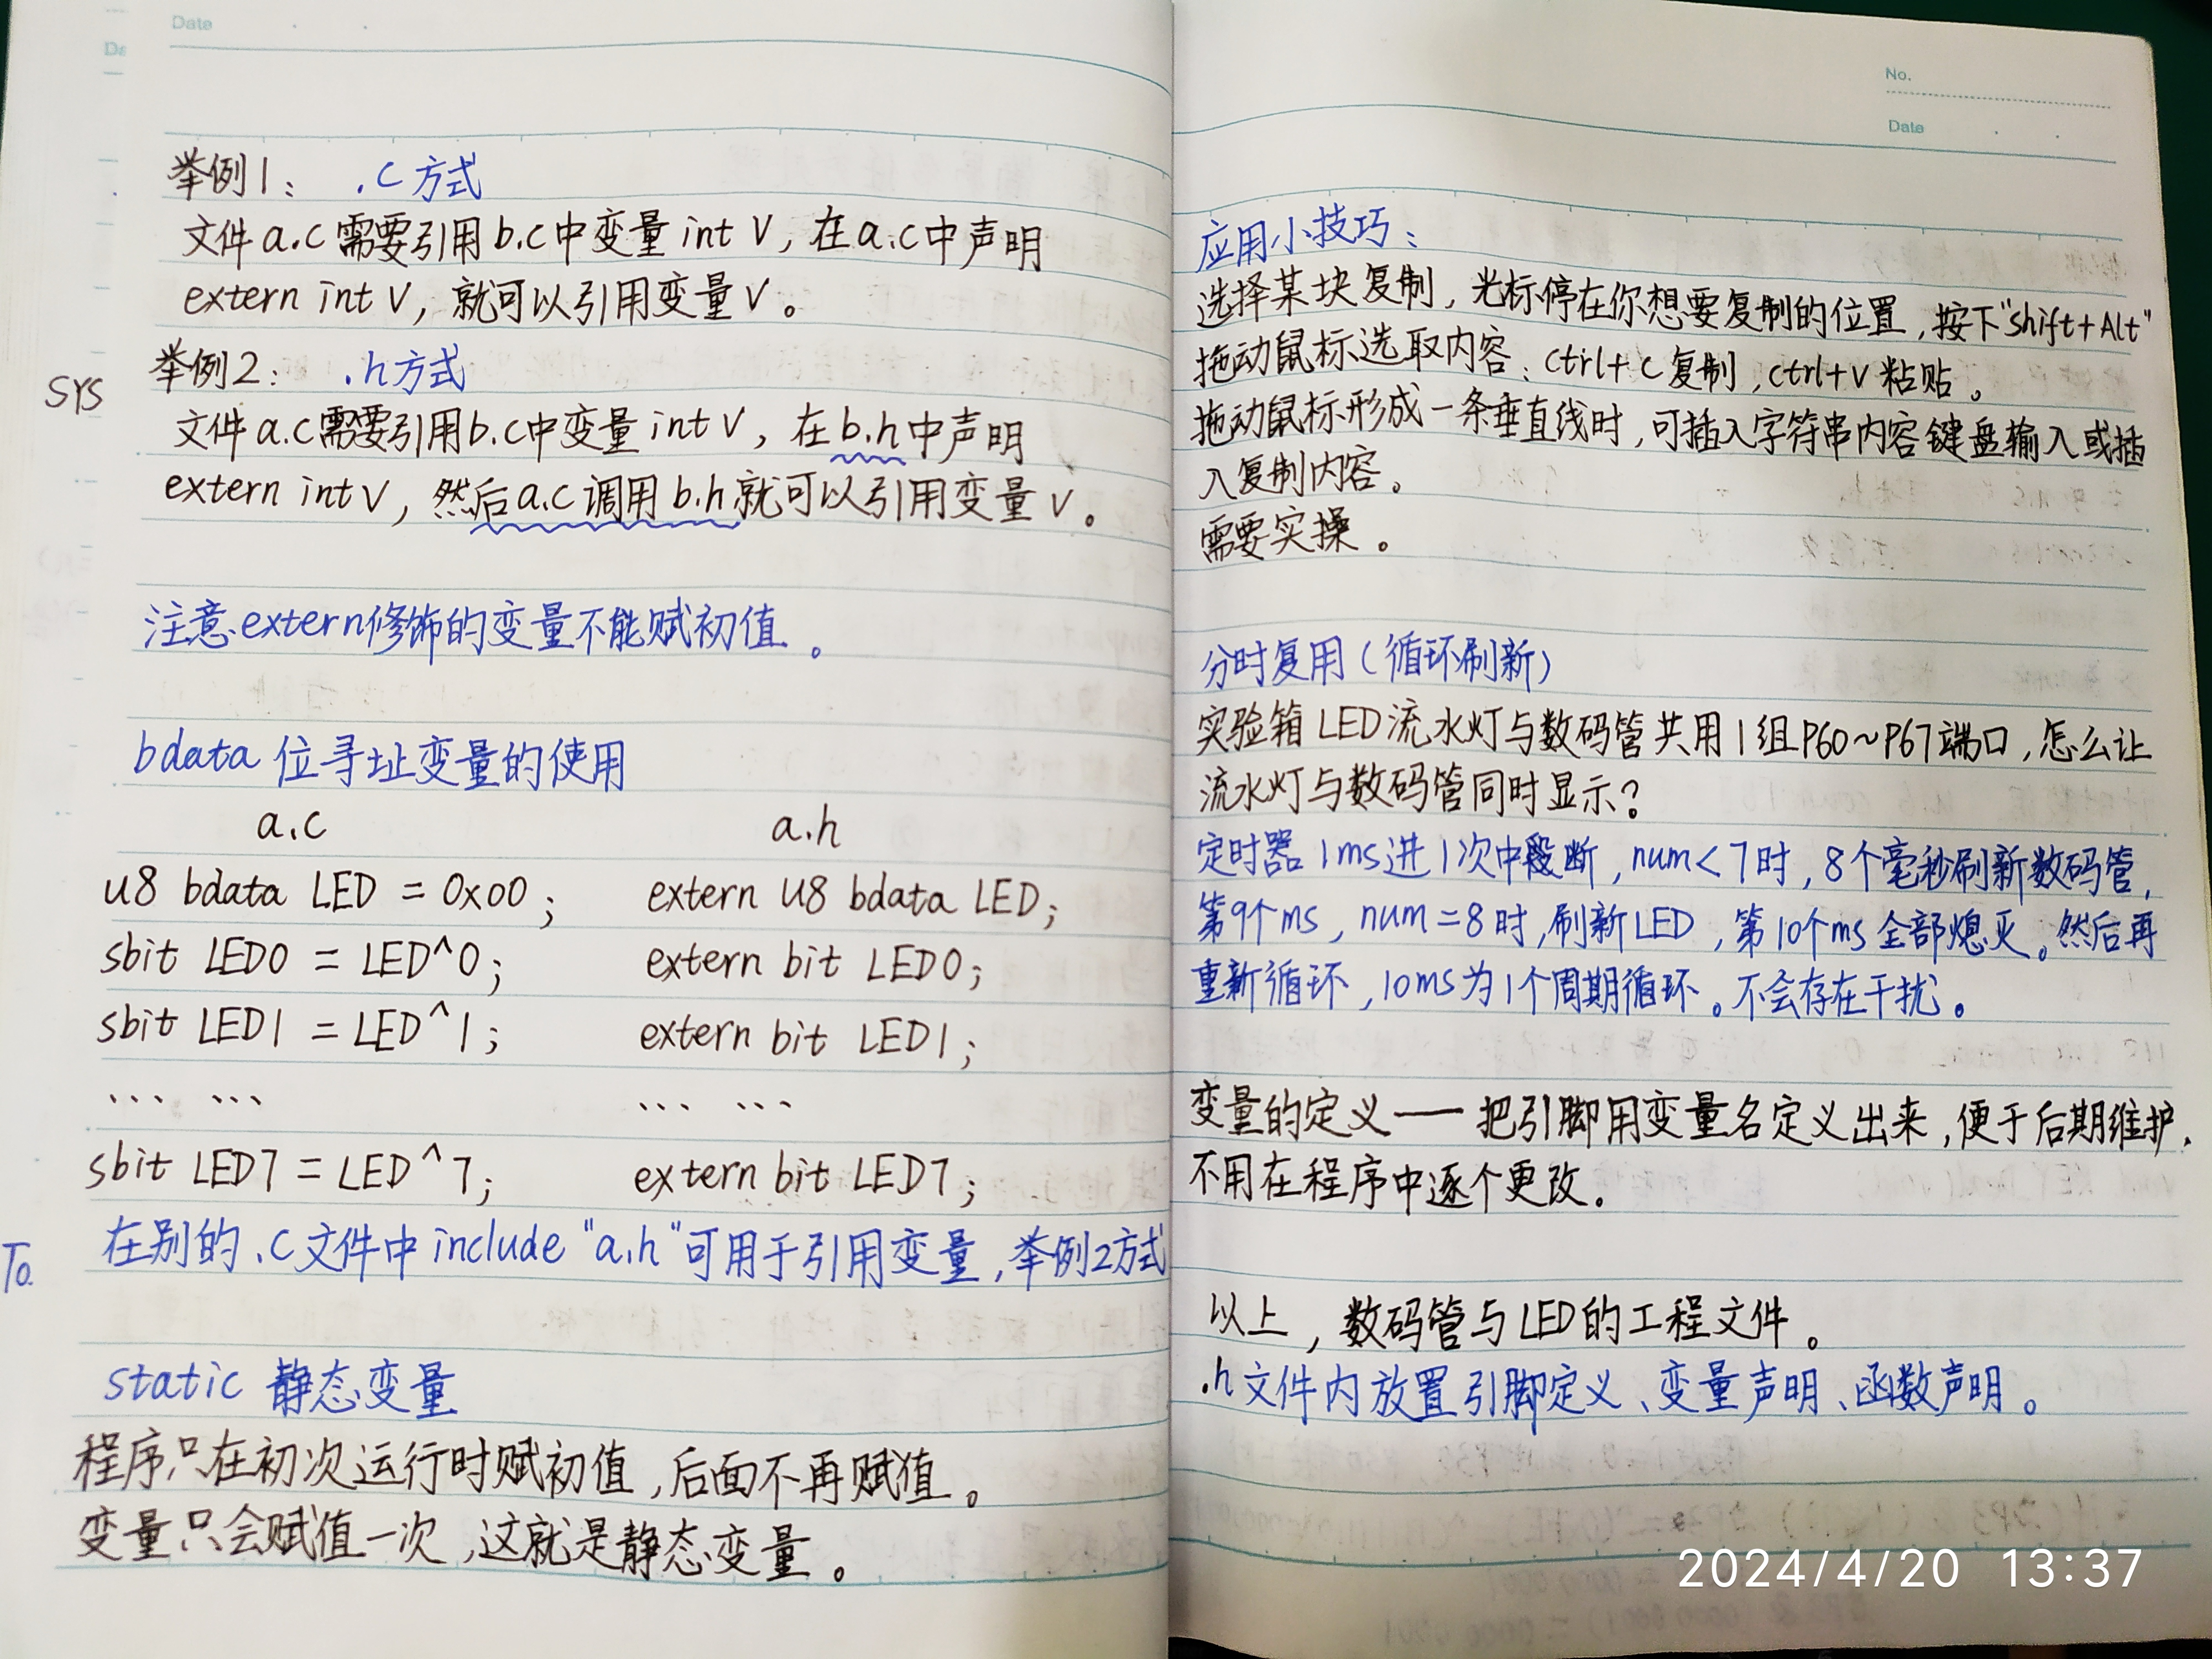 Date
举例1: .c方式
文件a.c需要引用b.c中变量int V, 在a.c中声明
extern int V, 就可以引用变量V。
举例2: .h方式
SYS
文件a.c需要引用b.c中变量int V, 在b.h中声明
extern int V, 然后a.c调用b.h就可以引用变量V。
注意extern修饰的变量不能赋初值。
bdata 位寻址变量的使用
a.c a.h
u8 bdata LED = 0x00; extern u8 bdata LED;
sbit LED0 = LED^0; extern bit LED0;
sbit LED1 = LED^1; extern bit LED1;
... ... ... ...
sbit LED7 = LED^7; extern bit LED7;
在别的.c文件中include "a.h"可用于引用变量,举例2方式
To.
static 静态变量
程序只在初次运行时赋初值,后面不再赋值。
变量只会赋值一次,这就是静态变量。
No.
Date
应用小技巧:
选择某块复制,光标停在你想要复制的位置,按下"shift+Alt"
拖动鼠标选取内容;ctrl+c复制,ctrl+v粘贴。
拖动鼠标形成一条垂直线时,可插入字符串内容键盘输入或插
入复制内容。
需要实操。
分时复用(循环刷新)
实验箱LED流水灯与数码管共用1组P60~P67端口,怎么让
流水灯与数码管同时显示?
定时器1ms进1次中断,num<7时,8个毫秒刷新数码管,
第9个ms,num=8时,刷新LED,第10个ms全部熄灭。然后再
重新循环,10ms为1个周期循环。不会存在干扰。
变量的定义——把引脚用变量名定义出来,便于后期维护,
不用在程序中逐个更改。
以上,数码管与LED的工程文件。
.h文件内放置引脚定义、变量声明、函数声明。
2024/4/20 13:37